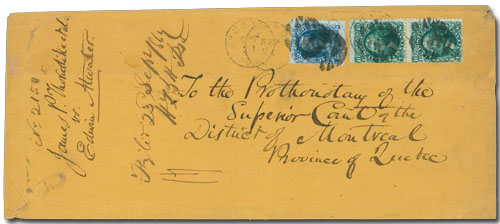 No 2150
James P.
vs.
Edwin Atwater
Fyled 25 Sept 1869
To the Prothonotary of the
Superior Court of the
District of Montreal
Province of Quebec